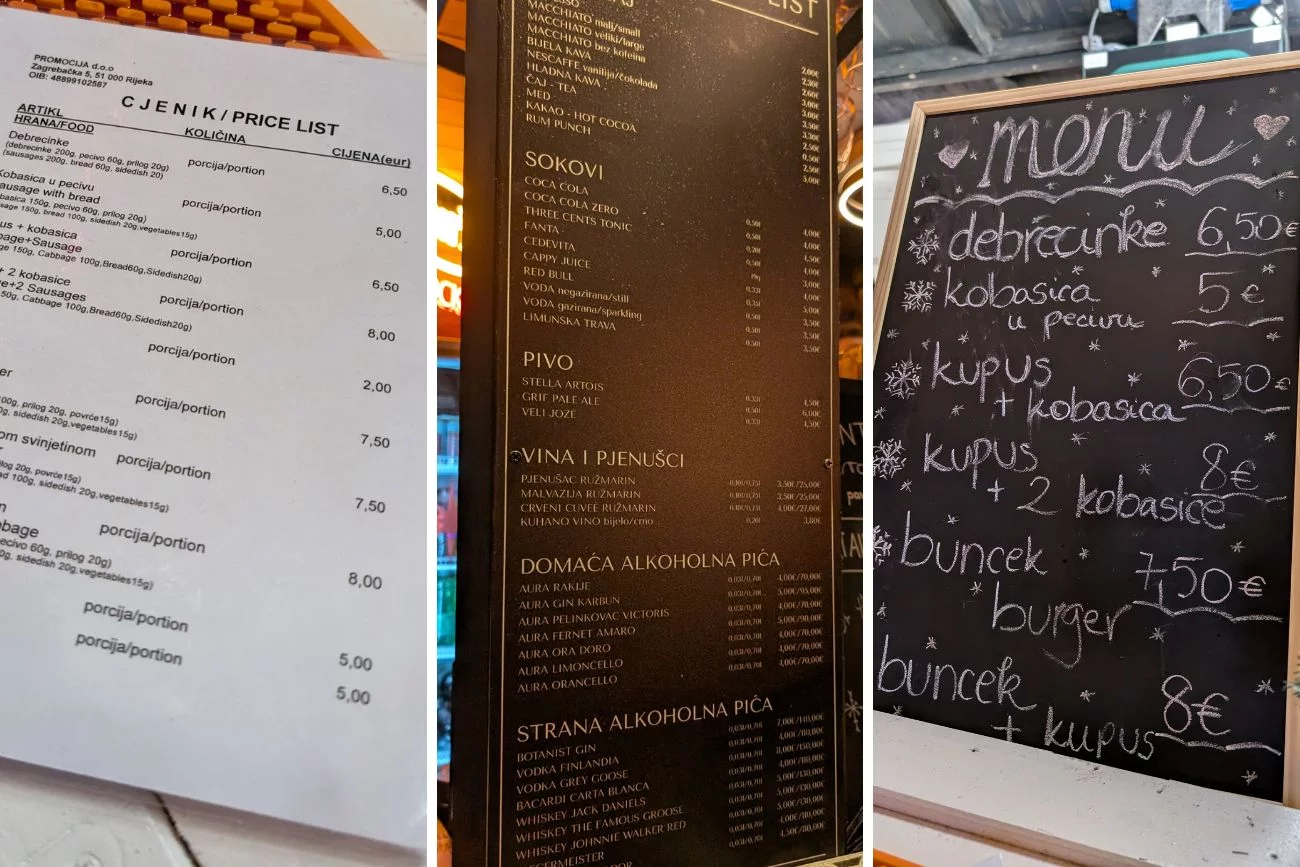 PROMOCIJA d.o.o
Zagrebačka 5, 51 000 Rijeka
OIB: 48899102587
CJENIK/PRICE LIST
ARTIKL KOLIČINA CIJENA(eur)
HRANA/FOOD
Debrecinke porcija/portion 6,50
(debrecinke 200g, pecivo 60g, prilog 20g)
(sausages 200g, bread 60g, sidedish 20)
Kobasica u pecivu porcija/portion 5,00
ausage with bread
basica 150g, pecivo 60g, prilog 20g)
sage 150g, bread 100g, sidedish 20g,vegetables15g)
us + kobasica porcija/portion 6,50
bage+Sausage
ge 150g, Cabbage 100g,Bread60g,Sidedish20g)
+ 2 kobasice porcija/portion 8,00
e+2 Sausages
50g, Cabbage 100g,Bread60g,Sidedish20g)
porcija/portion 2,00
er porcija/portion 7,50
100g, prilog 20g, povrće15g)
0g, sidedish 20g,vegetables15g)
om svinjetinom porcija/portion 7,50
log 20g, povrće15g)
ad 100g, sidedish 20g,vegetables15g)
n porcija/portion 8,00
bbage
ecivo 60g, prilog 20g)
0g, sidedish 20g,vegetables15g)
porcija/portion 5,00
porcija/portion 5,00
LIST
MACCHIATO mali/small
MACCHIATO veliki/large
MACCHIATO bez kofeina
BIJELA KAVA 2,00€
NESCAFFE vanilija/čokolada 2,30€
HLADNA KAVA 2,60€
ČAJ - TEA 3,00€
MED 3,00€
KAKAO - HOT COCOA 3,50€
RUM PUNCH 3,30€
2,50€
0,50€
2,50€
5,00€
SOKOVI
COCA COLA 0,50l 4,00€
COCA COLA ZERO 0,50l 4,00€
THREE CENTS TONIC 0,20l 4,50€
FANTA 0,50l 4,00€
CEDEVITA 19g 3,00€
CAPPY JUICE 0,33l 4,00€
RED BULL 0,35l 5,00€
VODA negazirana/still 0,50l 3,50€
VODA gazirana/sparkling 0,50l 3,50€
LIMUNSKA TRAVA 0,50l 3,50€
PIVO
STELLA ARTOIS 0,33l 4,50€
GRIF PALE ALE 0,50l 6,00€
VELI JOŽE 0,33l 4,50€
VINA I PJENUŠCI
PJENUŠAC RUŽMARIN 0,10l/0,75l 3,50€/25,00€
MALVAZIJA RUŽMARIN 0,10l/0,75l 3,50€/25,00€
CRVENI CUVEE RUŽMARIN 0,10l/0,75l 4,00€/27,00€
KUHANO VINO bijelo/crno 0,20l 3,80€
DOMAĆA ALKOHOLNA PIĆA
AURA RAKIJE 0,03l/0,70l 4,00€/70,00€
AURA GIN KARBUN 0,03l/0,70l 5,00€/95,00€
AURA PELINKOVAC VICTORIS 0,03l/0,70l 4,00€/70,00€
AURA FERNET AMARO 0,03l/0,70l 5,00€/90,00€
AURA ORA DORO 0,03l/0,70l 4,00€/70,00€
AURA LIMONCELLO 0,03l/0,70l 4,00€/70,00€
AURA ORANCELLO 0,03l/0,70l 4,00€/70,00€
STRANA ALKOHOLNA PIĆA
BOTANIST GIN 0,03l/0,70l 7,00€/140,00€
VODKA FINLANDIA 0,03l/0,70l 4,00€/80,00€
VODKA GREY GOOSE 0,03l/0,70l 8,00€/150,00€
BACARDI CARTA BLANCA 0,03l/0,70l 4,00€/110,00€
WHISKEY JACK DANIELS 0,03l/0,70l 5,00€/130,00€
WHISKEY THE FAMOUS GROOSE 0,03l/0,70l 5,00€/130,00€
WHISKEY JOHNNIE WALKER RED 0,03l/0,70l 4,00€/110,00€
0,03l/0,70l 4,50€/80,00€
menu
debrecinke 6,50€
kobasica 5€
u pecivu
kupus 6,50€
+ kobasica
kupus 8€
+ 2 kobasice
buncek 7,50€
burger
buncek 8€
+ kupus